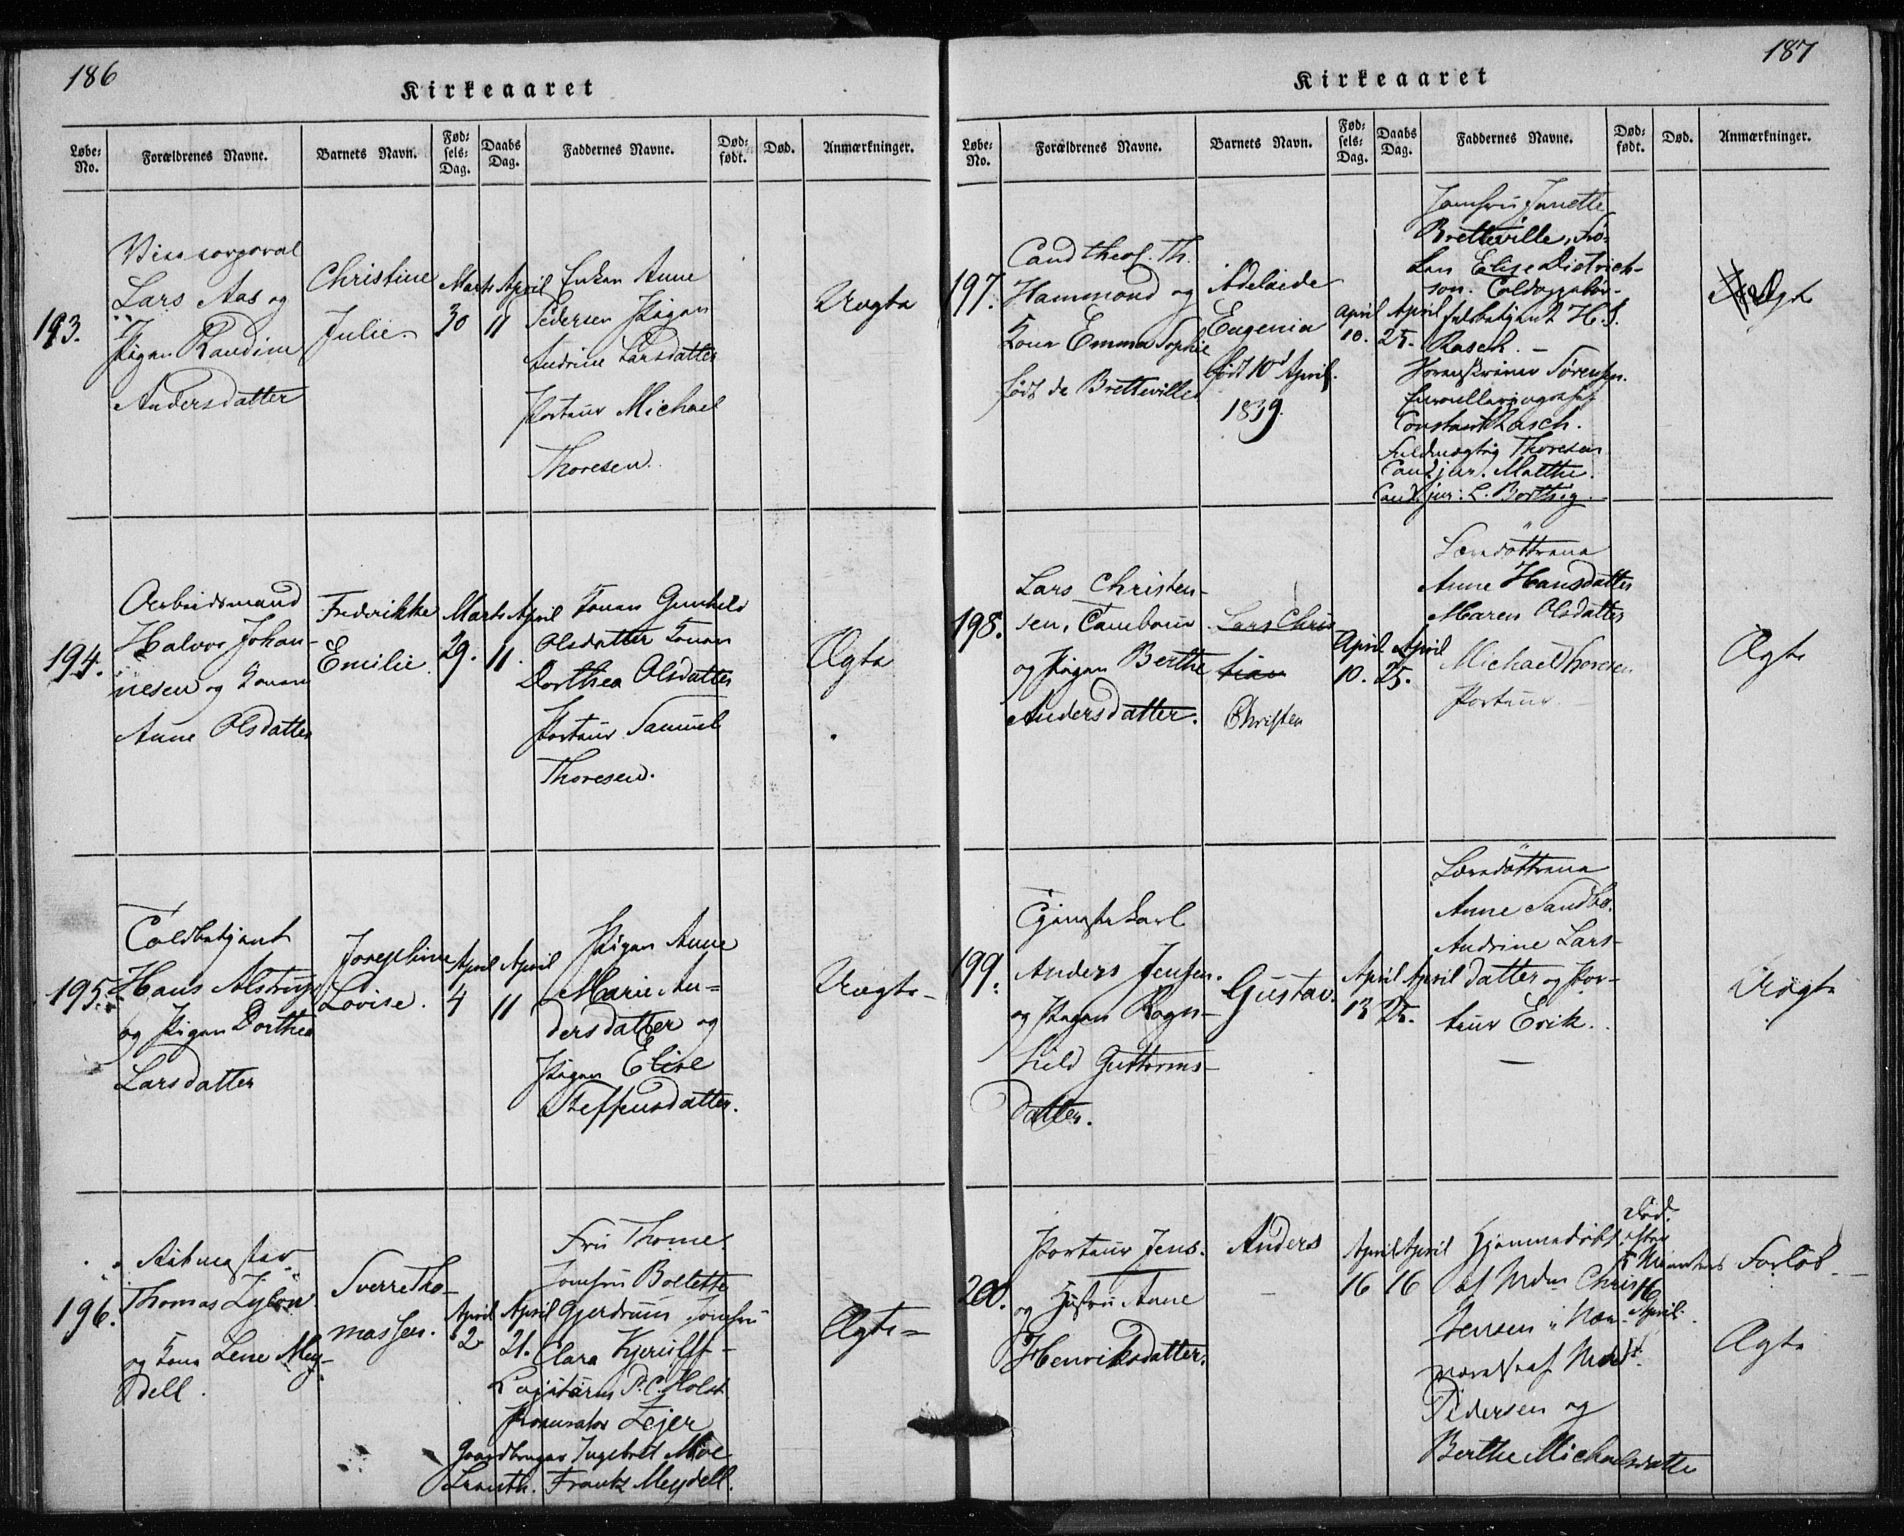 186
Kirkeaaret
Løbe-No. Forældrenes Navne. Barnets Navn. Fødsels-Dag. Daabs Dag. Faddernes Navne. Dødfødt. Død. Anmærkninger.
193.
Vicecorporal
Lars Aas og
Pigen Randine
Andersdatter
Christine
Julie.
Marts
30
April
11
Enken Anne
Pedersen Pigen
Andrine Larsdatter
Porteur Michael
Thoresen.
Uægte
194.
Arbeidsmand
Halvor Johan-
nesen og Konen
Anne Olsdatter
Frederikke
Emilie
Marts
29.
April
11.
Konen Gunhild
Olsdatter Konen
Dorthea Olsdatter
Porteur Samuel
Thoresen.
Ægte
195.
Toldbetjent
Hans Alstrup
og Pigen Dorthea
Larsdatter
Josephine
Lovise.
April
4
April
11
Pigen Anne
Marie An-
dersdatter og
Pigen Elise
Steffensdatter.
Uægte
196.
Thomas
og Kone Lene Mey-
dell.
Sverre Tho-
massen.
April
2
April
21.
Fru Thome.
Jomfru Bolette
Gjerdrum Jomfru
Clara Kjerulff
P. C. Holst
Procurator Lejer
Gaardbruger Ingebret Moe
Frantz Meydell.
Ægte
187
Kirkeaaret
Løbe-No. Forældrenes Navne. Barnets Navn. Fødsels-Dag. Daabs Dag. Faddernes Navne. Dødfødt. Død. Anmærkninger.
197.
Cand theol. Th.
Hammond og
Kone Emma Sophie
født de Bretteville
Adelaide
Eugenia
født 10d April.
1839.
April
10.
April
25.
Jomfru Janette
Bretteville, Frø-
ken Elise Dietrich-
son. Toldoppebør-
selsbetjent H. J.
Rasch.
Sørensen.
Constant Rasch.
Fuldmægtig Thoresen
Cand jur. Malthe.
Cand. jur: L.
Ægte
198.
Lars Christen-
sen, Tambour
og Pigen Berthe
Andersdatter.
Lars Chris
tian
Christen
April
10.
April
25.
Anne Hansdatter
Maren Olsdatter
Michael Thoresen
Porteur
Ægte
199.
Tjenestekarl
Anders Jensen.
og Pigen Ragn-
hild Guttorms-
datter.
Gustav.
April
13
April
25.
Anne Sandbo.
Andrine Lars-
datter og Por-
teur Erik.
Uægte
200.
Porteur Jens.
og Hustru Anne
Henriksdatter.
Anders
April
16
April
16
Hjemmedøbt
af Mdm Chris
Jensen i Nær-
værelse af Mdm
Pedersen og
Berthe Michaelsdatter
død.
efter
5 Minuter
16
April.
Forløb
Ægte